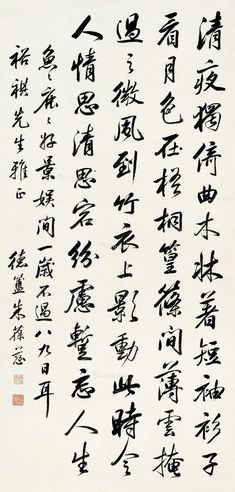 清夜獨倚曲木牀著短袖衫子
看月色在梧桐篁篠間薄雲掩
過之微風到竹衣上影動此時令
人情思清思宕紛慮蹔忘人生
魚魚鹿鹿好景娛閒一歲不過八九日耳
裕祺先生雅正
德簠朱葆慈